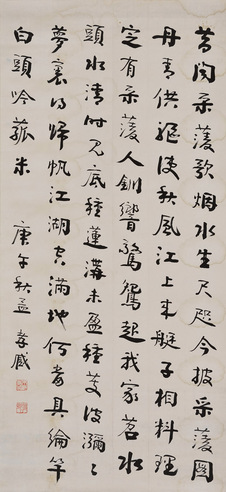 昔闻采菱歌烟水生尺咫今披采菱图
丹青供驱使秋风江上来艇子相料理
定有采菱人钏响惊鸳起我家苕水
头水清时见底种莲沟未盈种芰波弥〻
梦里得归帆江湖空满地何当具纶竿
白头吟菰米 庚午秋孟 孝臧